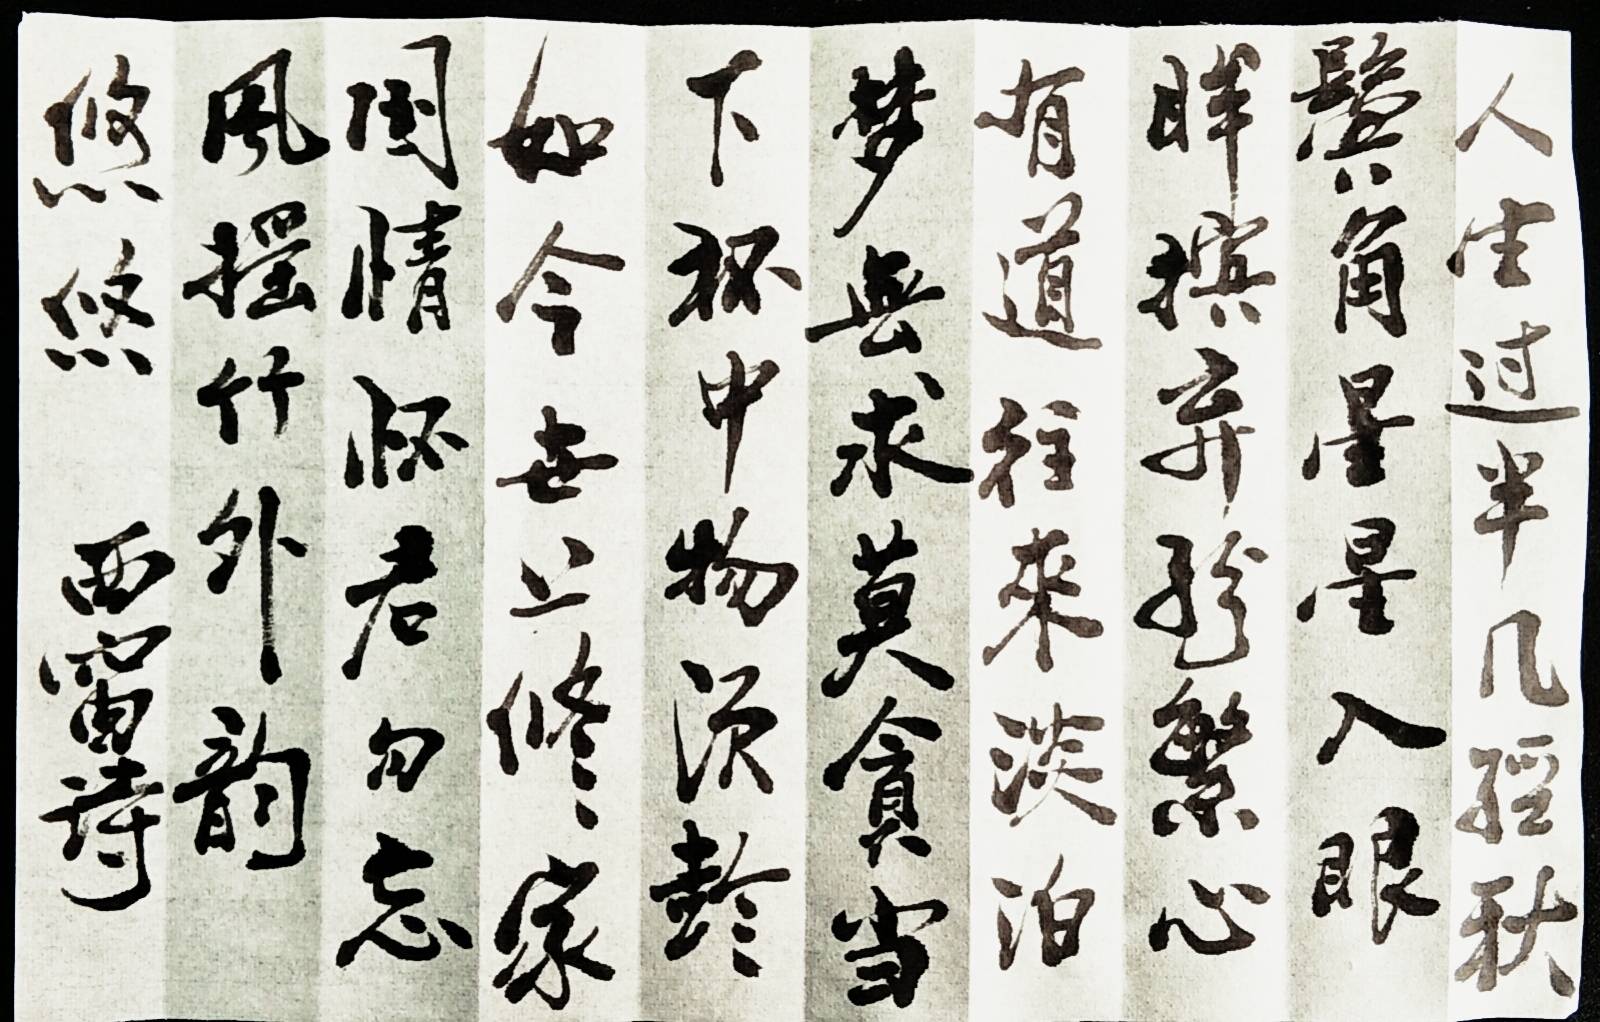 人生过半几經秋
鬓角星星入眼
眸摈弃纷繁心
有道往來淡泊
梦無求莫貪当
下杯中物须
如今世上修家
国情怀君勿忘
風摇竹外韵
悠悠 西窗詩